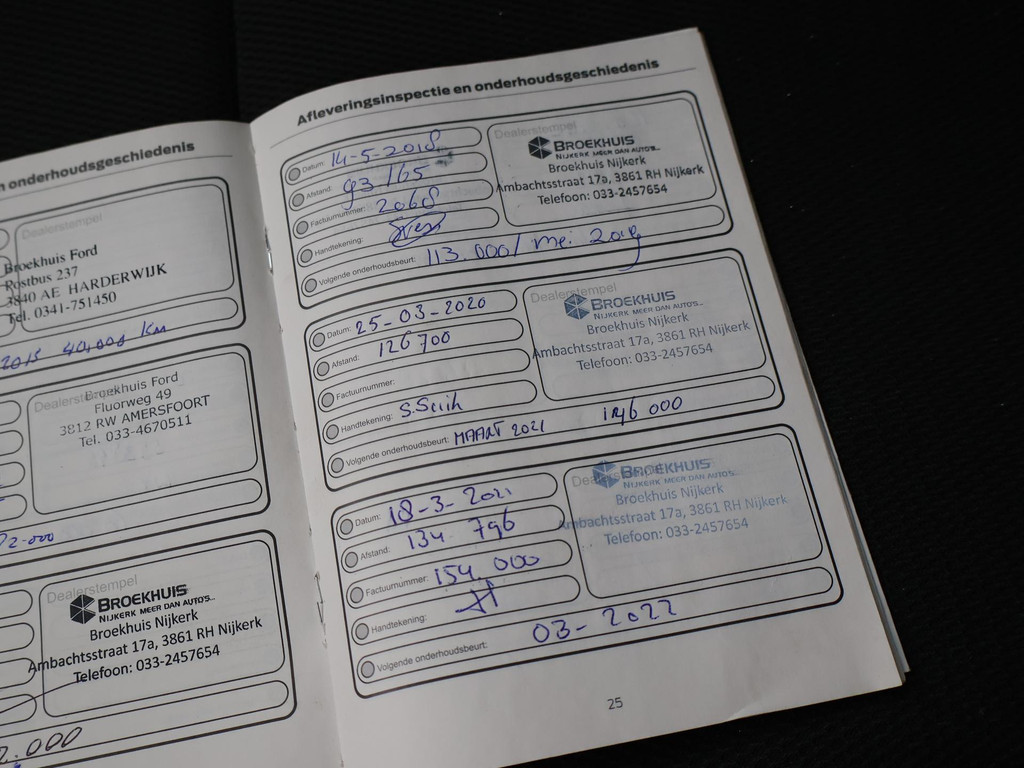 n onderhoudsgeschiedenis
Dealerstempel
Broekhuis Ford
Postbus 237
3840 AE HARDERWIJK
Tel. 0341-751450
2015 40.000 Km
Dealerstempel
Broekhuis Ford
Fluorweg 49
3812 RW AMERSFOORT
Tel. 033-4670511
2.000
Dealerstempel
BROEKHUIS
NIJKERK MEER DAN AUTO'S...
Broekhuis Nijkerk
Ambachtsstraat 17a, 3861 RH Nijkerk
Telefoon: 033-2457654
2.000
Afleveringsinspectie en onderhoudsgeschiedenis
Datum: 14-5-2018
Afstand: 93 165
Factuurnummer: 2068
Handtekening:
Volgende onderhoudsbeurt: 113.000/ mei 2019
Dealerstempel
BROEKHUIS
NIJKERK MEER DAN AUTO'S...
Broekhuis Nijkerk
Ambachtsstraat 17a, 3861 RH Nijkerk
Telefoon: 033-2457654
Datum: 25-03-2020
Afstand: 126 700
Factuurnummer:
Handtekening:
Volgende onderhoudsbeurt: MAART 2021 146 000
Dealerstempel
BROEKHUIS
NIJKERK MEER DAN AUTO'S...
Broekhuis Nijkerk
Ambachtsstraat 17a, 3861 RH Nijkerk
Telefoon: 033-2457654
Datum: 18-3-2021
Afstand: 134 796
Factuurnummer: 154.000
Handtekening:
Volgende onderhoudsbeurt: 03-2022
BROEKHUIS
NIJKERK MEER DAN AUTO'S...
Broekhuis Nijkerk
Ambachtsstraat 17a, 3861 RH Nijkerk
Telefoon: 033-2457654
25